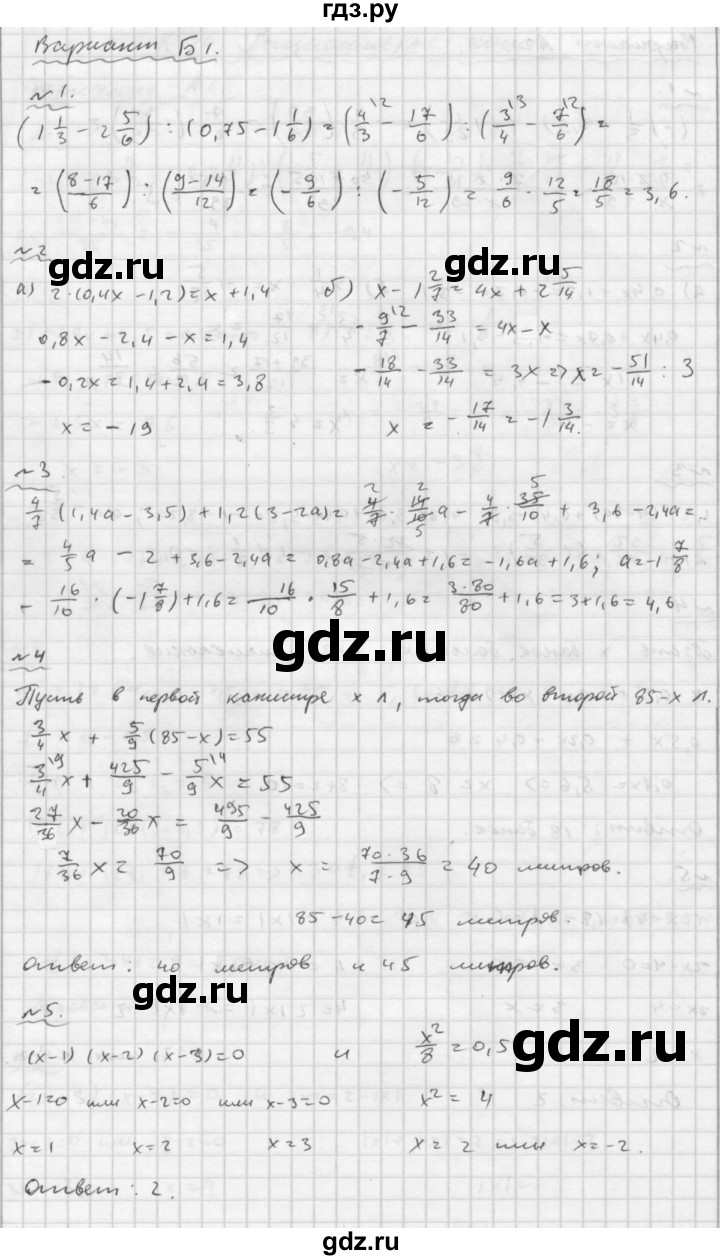 гдз.ру
Вариант Б1.
№1.
(1 1/3 - 2 5/6) : (0,75 - 1 1/6) = (4/3^\2 - 17/6) : (3/4^\3 - 7/6^\2) =
= ((8-17)/6) : ((9-14)/12) = (-9/6) : (-5/12) = 9/6 · 12/5 = 18/5 = 3,6.
№2
gdz.ru gdz.ru
а) 2·(0,4x - 1,2) = x + 1,4 б) x - 1 2/7 = 4x + 2 5/14
0,8x - 2,4 - x = 1,4 - 9/7^\2 - 33/14 = 4x - x
-0,2x = 1,4 + 2,4 = 3,8 - 18/14 - 33/14 = 3x => x = -51/14 : 3
x = -19 x = -17/14 = -1 3/14.
№3
4/7 (1,4a - 3,5) + 1,2(3 - 2a) = 4/7 · 14/10 a - 4/7 · 35/10 + 3,6 - 2,4a =
= 4/5 a - 2 + 3,6 - 2,4a = 0,8a - 2,4a + 1,6 = -1,6a + 1,6; a = -1 7/8
- 16/10 · (-1 7/8) + 1,6 = 16/10 · 15/8 + 1,6 = 3·80/80 + 1,6 = 3 + 1,6 = 4,6
gdz.ru
№4
Пусть в первой канистре x л, тогда во второй 85-x л.
3/4 x + 5/9 (85-x) = 55
3/4^\9 x + 425/9 - 5/9^\4 x = 55
27/36 x - 20/36 x = 495/9 - 425/9
7/36 x = 70/9 => x = 70·36/7·9 = 40 литров.
85 - 40 = 45 литров.
Ответ: 40 литров и 45 литров.
gdz.ru
№5.
(x-1) (x-2) (x-3) = 0 и x²/8 = 0,5
x-1=0 или x-2=0 или x-3=0 x² = 4
x=1 x=2 x=3 x = 2 или x = -2.
Ответ: 2.
gdz.ru